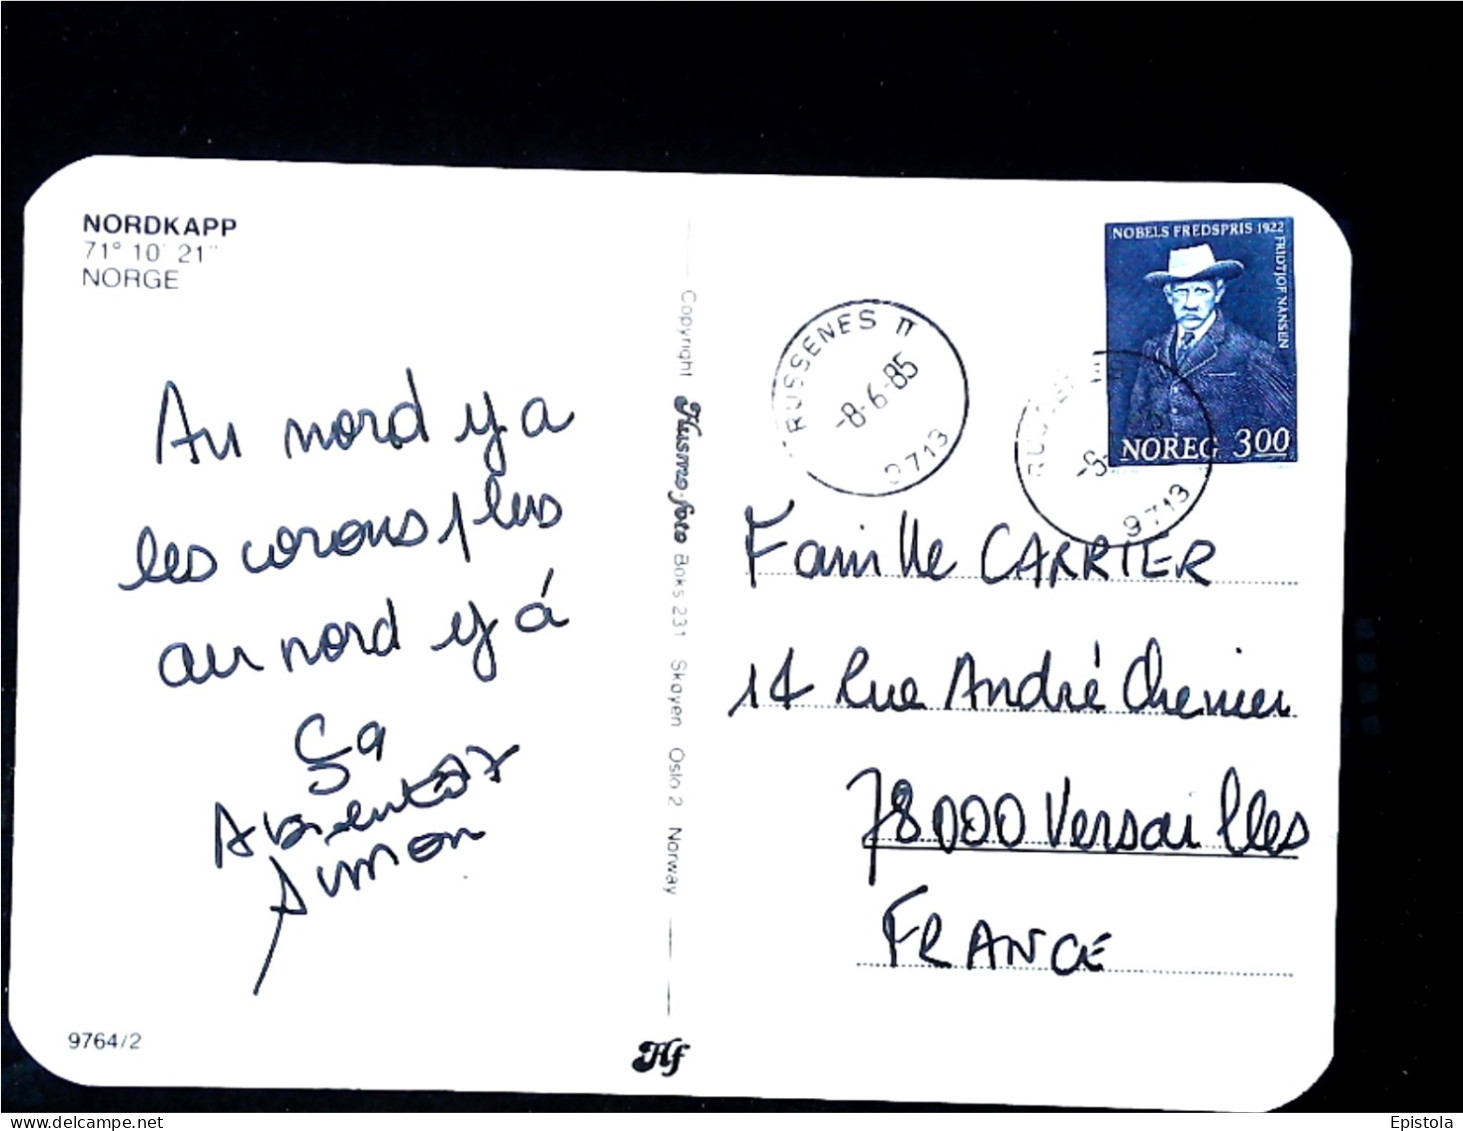 NORDKAPP
71° 10' 21"
NORGE
Au nord y a
les corons plus
au nord y á
ça
A bientôt
Simon
9764/2
Copyright Husmo-foto Boks 231 Skøyen Oslo 2 Norway
Hf
NOBELS FREDSPRIS 1922
FRIDTJOF NANSEN
NOREG 300
RUSSENES
-8-6-85
9713
9713
Famille CARRIER
14 Rue André Chenier
78000 Versailles
FRANCE
delcampe.net
Epistola